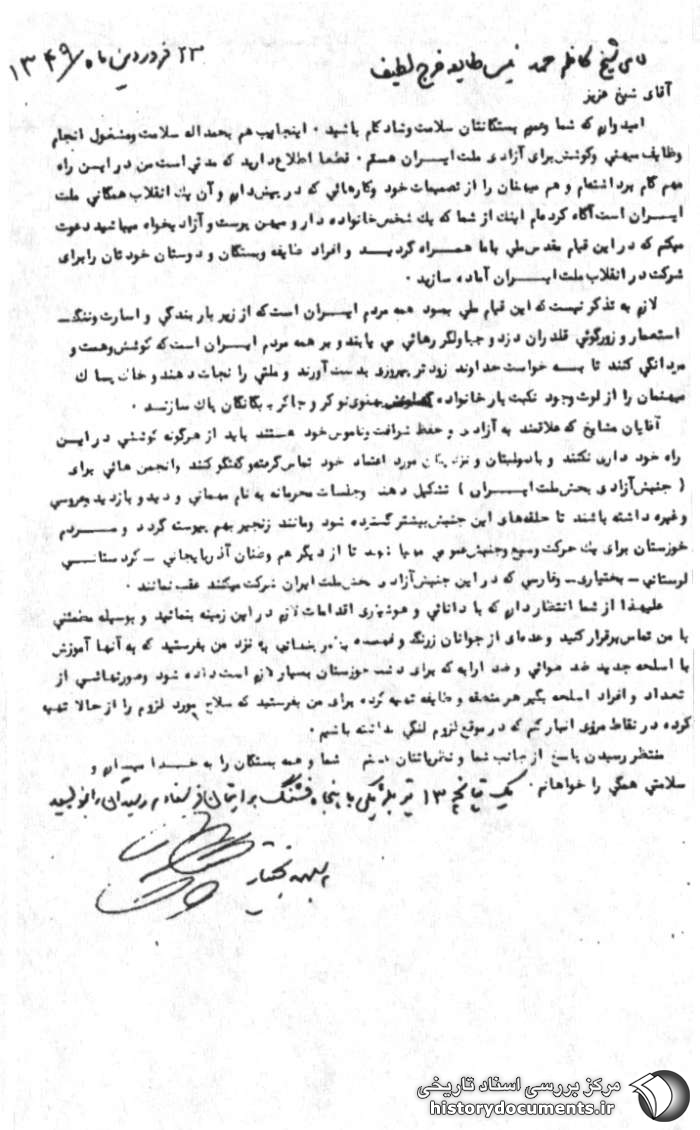 ۲۳ فروردین ماه ۱۳۴۹
آقای شیخ کاظم حمد رئیس طایفه فرج لطیف
آقای شیخ عزیز
امیدوارم که شما وعموم بستگانتان سلامت وشاد کام باشید ۰ اینجانب هم بحمداله سلامت ومشغول انجام
وظایف میهنی وکوشش برای آزادی ملت ایــران هستم ۰ قطعا اطلاع دارید که مدتی است من در ایـن راه
مهم گام برداشته‌ام و هم میهنان را از تصمیمات خود وکارهائی که در پیش دارم و آن یک انقلاب همگانی ملت
ایــران است آگاه کرده‌ام اینک از شما که یک شخص خانواده دار و میهن پرست و آزادیخواه میباشید دعوت
میکنم که در این قیام مقدس ملی باما همــراه گردیــد و افراد طایفه وبستگان و دوستان خودتان را برای
شرکت در انقلاب ملت ایــران آماده سازید ۰
لازم به تذکر نیست که این قیام ملی بسود همه مردم ایــران است که از زیر بار بندگی و اسارت وننگ ـ
استعمار و زورگوئی قلدران دزد و چپاولگر رهائی می یابند و بر همه مردم ایــران است که کوشش وهمت و
مردانگی کنند تا بــه خواست خداوند زودتر پیروزی بدست آورند و ملتی را نجات دهند و خاک پــاک
میهنمان را از لوث وجود نکبت بار خانواده پهلوی نوکر و چاکر بیگانگان پاک سازنــد ۰
آقایان مشایخ که علاقمند به آزادی و حفظ شرافت وناموس خود هستند باید از هرگونه کوششی در ایــن
راه خود داری نکنند و بادوستان و نزدیکان مورد اعتماد خود تماس گرفته وگفتگو کنند وانجمن هائی برای
( جنبش آزادی بخش ملت ایــران ) تشکیل دهند وجلسات محرمانه به نام مهمانی و دید و بازدید وعروسی
وغیره داشته باشند تا حلقه‌های این جنبش بیشتر گسترده شود ومانند زنجیر بهم پیوسته گردد و مــردم
خوزستان برای یک حرکت وسیع وجنبش عمومی مهیا شوند تا از دیگر هم وطنان آذربایجانی ـ کردستانــی
لرستانی ـ بختیاری ـ وفارسی که در این جنبش آزادی بخش ملت ایران شرکت میکنند عقب نمانند ۰
علیهذا از شما انتظار دارم که با دانائی و هوشیاری اقدامات لازم در این زمینه بنمائید و بوسیله مطمئنی
با من تماس برقرار کنید و عده‌ای از جوانان زرنگ و فهمیده به نزد من بفرستید که به آنها آموزش
با اسلحه جدید ضد هوائی و ضد ارابه که برای دشت خوزستان بسیار لازم است داده شود وصورتهائــی از
تعداد و افراد اسلحه بگیر هر منطقه و طایفه تهیه کرده برای من بفرستید که سلاح مورد لزوم را از حالا تهیه
کرده در نقاط مرزی انبار کنم که در موقع لزوم لنگی نداشته باشیم ۰
منتظر رسیدن پاسخ از جانب شما و نظریاتتان هستم شما و همه بستگان را به خــدا میسپارم و
سلامتی همگی را خواهانم ۰ یک تپانچه ۱۳ تیر بلژیکی با پنجاه فشنگ برایتان فرستادم رسیدش را بنویسید
بختیار
مرکز بررسی اسناد تاریخی
historydocuments.ir